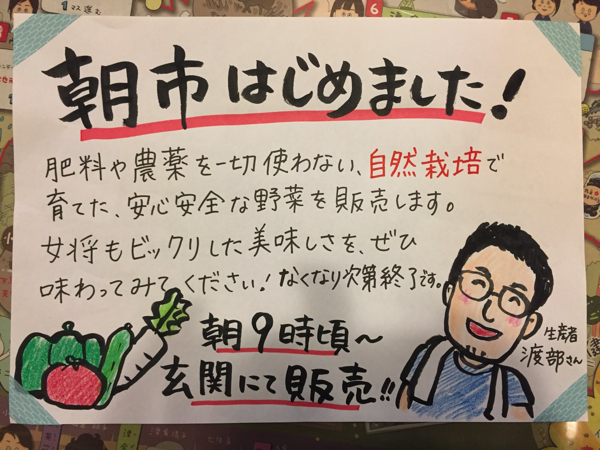 朝市はじめました!
肥料や農薬を一切使わない、自然栽培で
育てた、安心安全な野菜を販売します。
女将もビックリした美味しさを、ぜひ
味わってみてください!なくなり次第終了です。
朝9時頃~
玄関にて販売!!
生産者
渡部さん
1マス進む
6